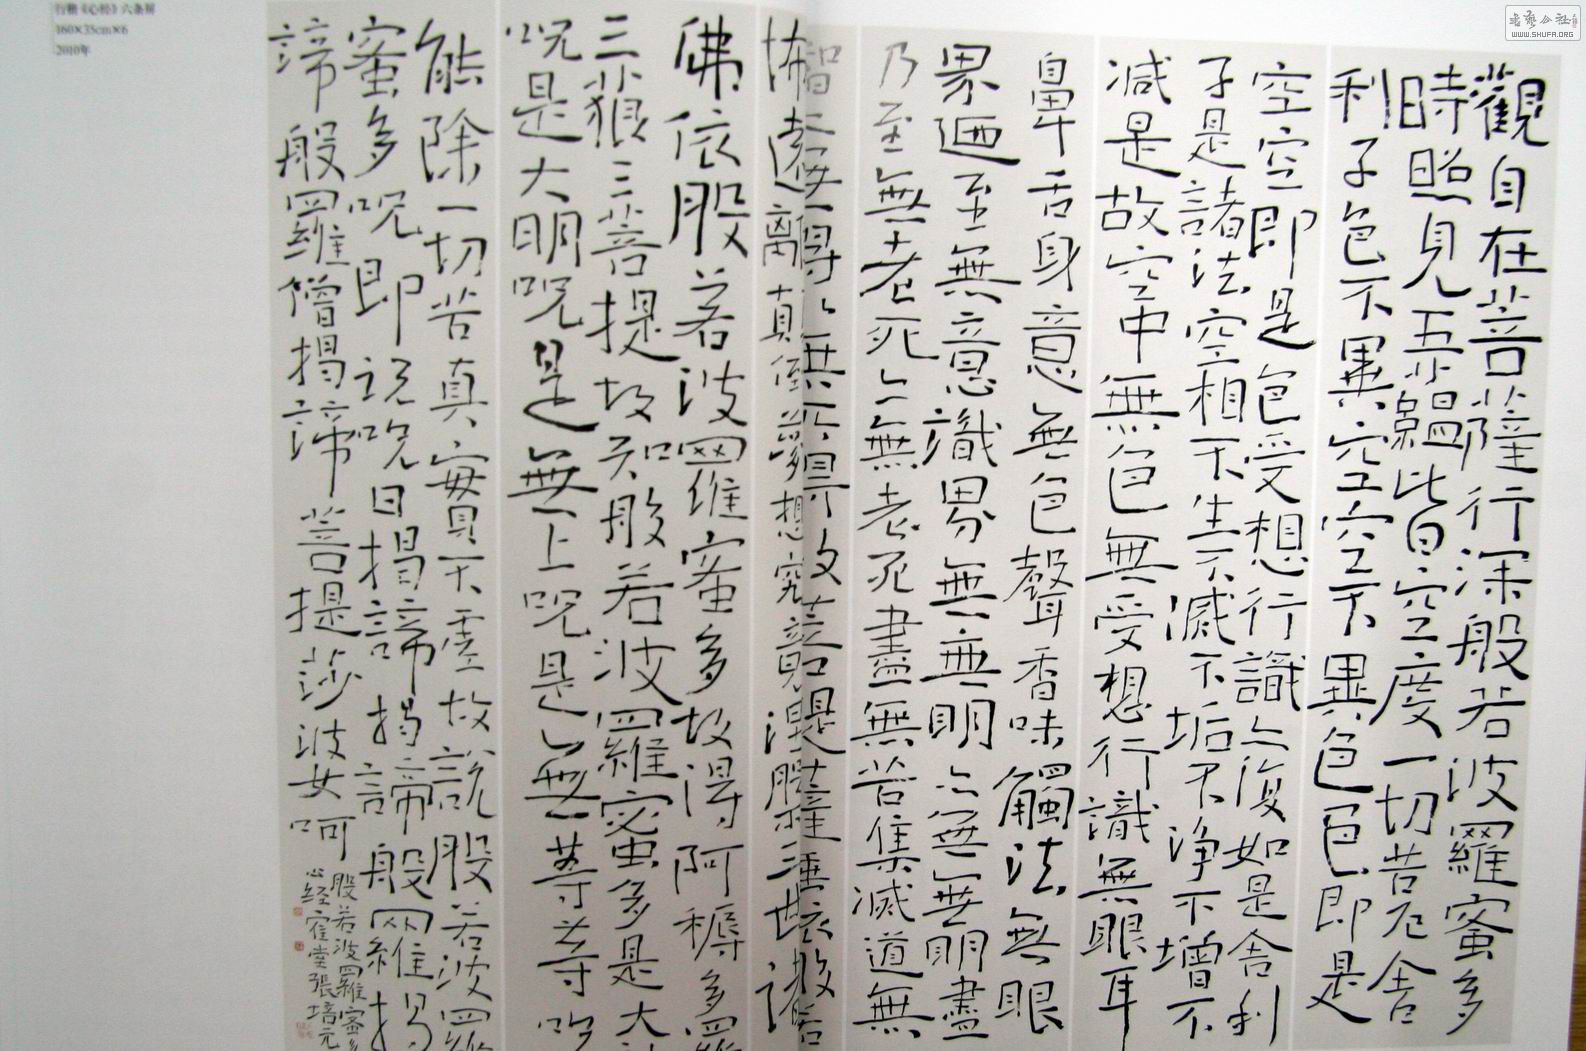 行楷《心经》六条屏
160×35cm×6
2010年
觀自在菩薩行深般若波羅蜜多
時照見五蘊皆空度一切苦厄舍
利子色不異空空不異色色即是
空空即是色受想行識亦復如是舍利
子是諸法空相不生不滅不垢不淨不增不
減是故空中無色無受想行識無眼耳
鼻舌身意無色聲香味觸法無眼
界廼至無意識界無無明亦無無明盡
乃至無老死亦無老死盡無苦集滅道無
智亦無得以無所得故菩提薩埵依般若
怖遠離顛倒夢想究竟涅槃三世諸
佛依般若波羅蜜多故得阿耨多羅
三藐三菩提故知般若波羅蜜多是大
呪是大明呪是無上呪是無等等呪
能除一切苦真實不虛故說般若波羅
蜜多呪即說呪曰揭諦揭諦般羅揭
諦般羅僧揭諦菩提莎婆呵
般若波羅蜜多
心經寉堂張培元
書藝公社
WWW.SHUFA.ORG